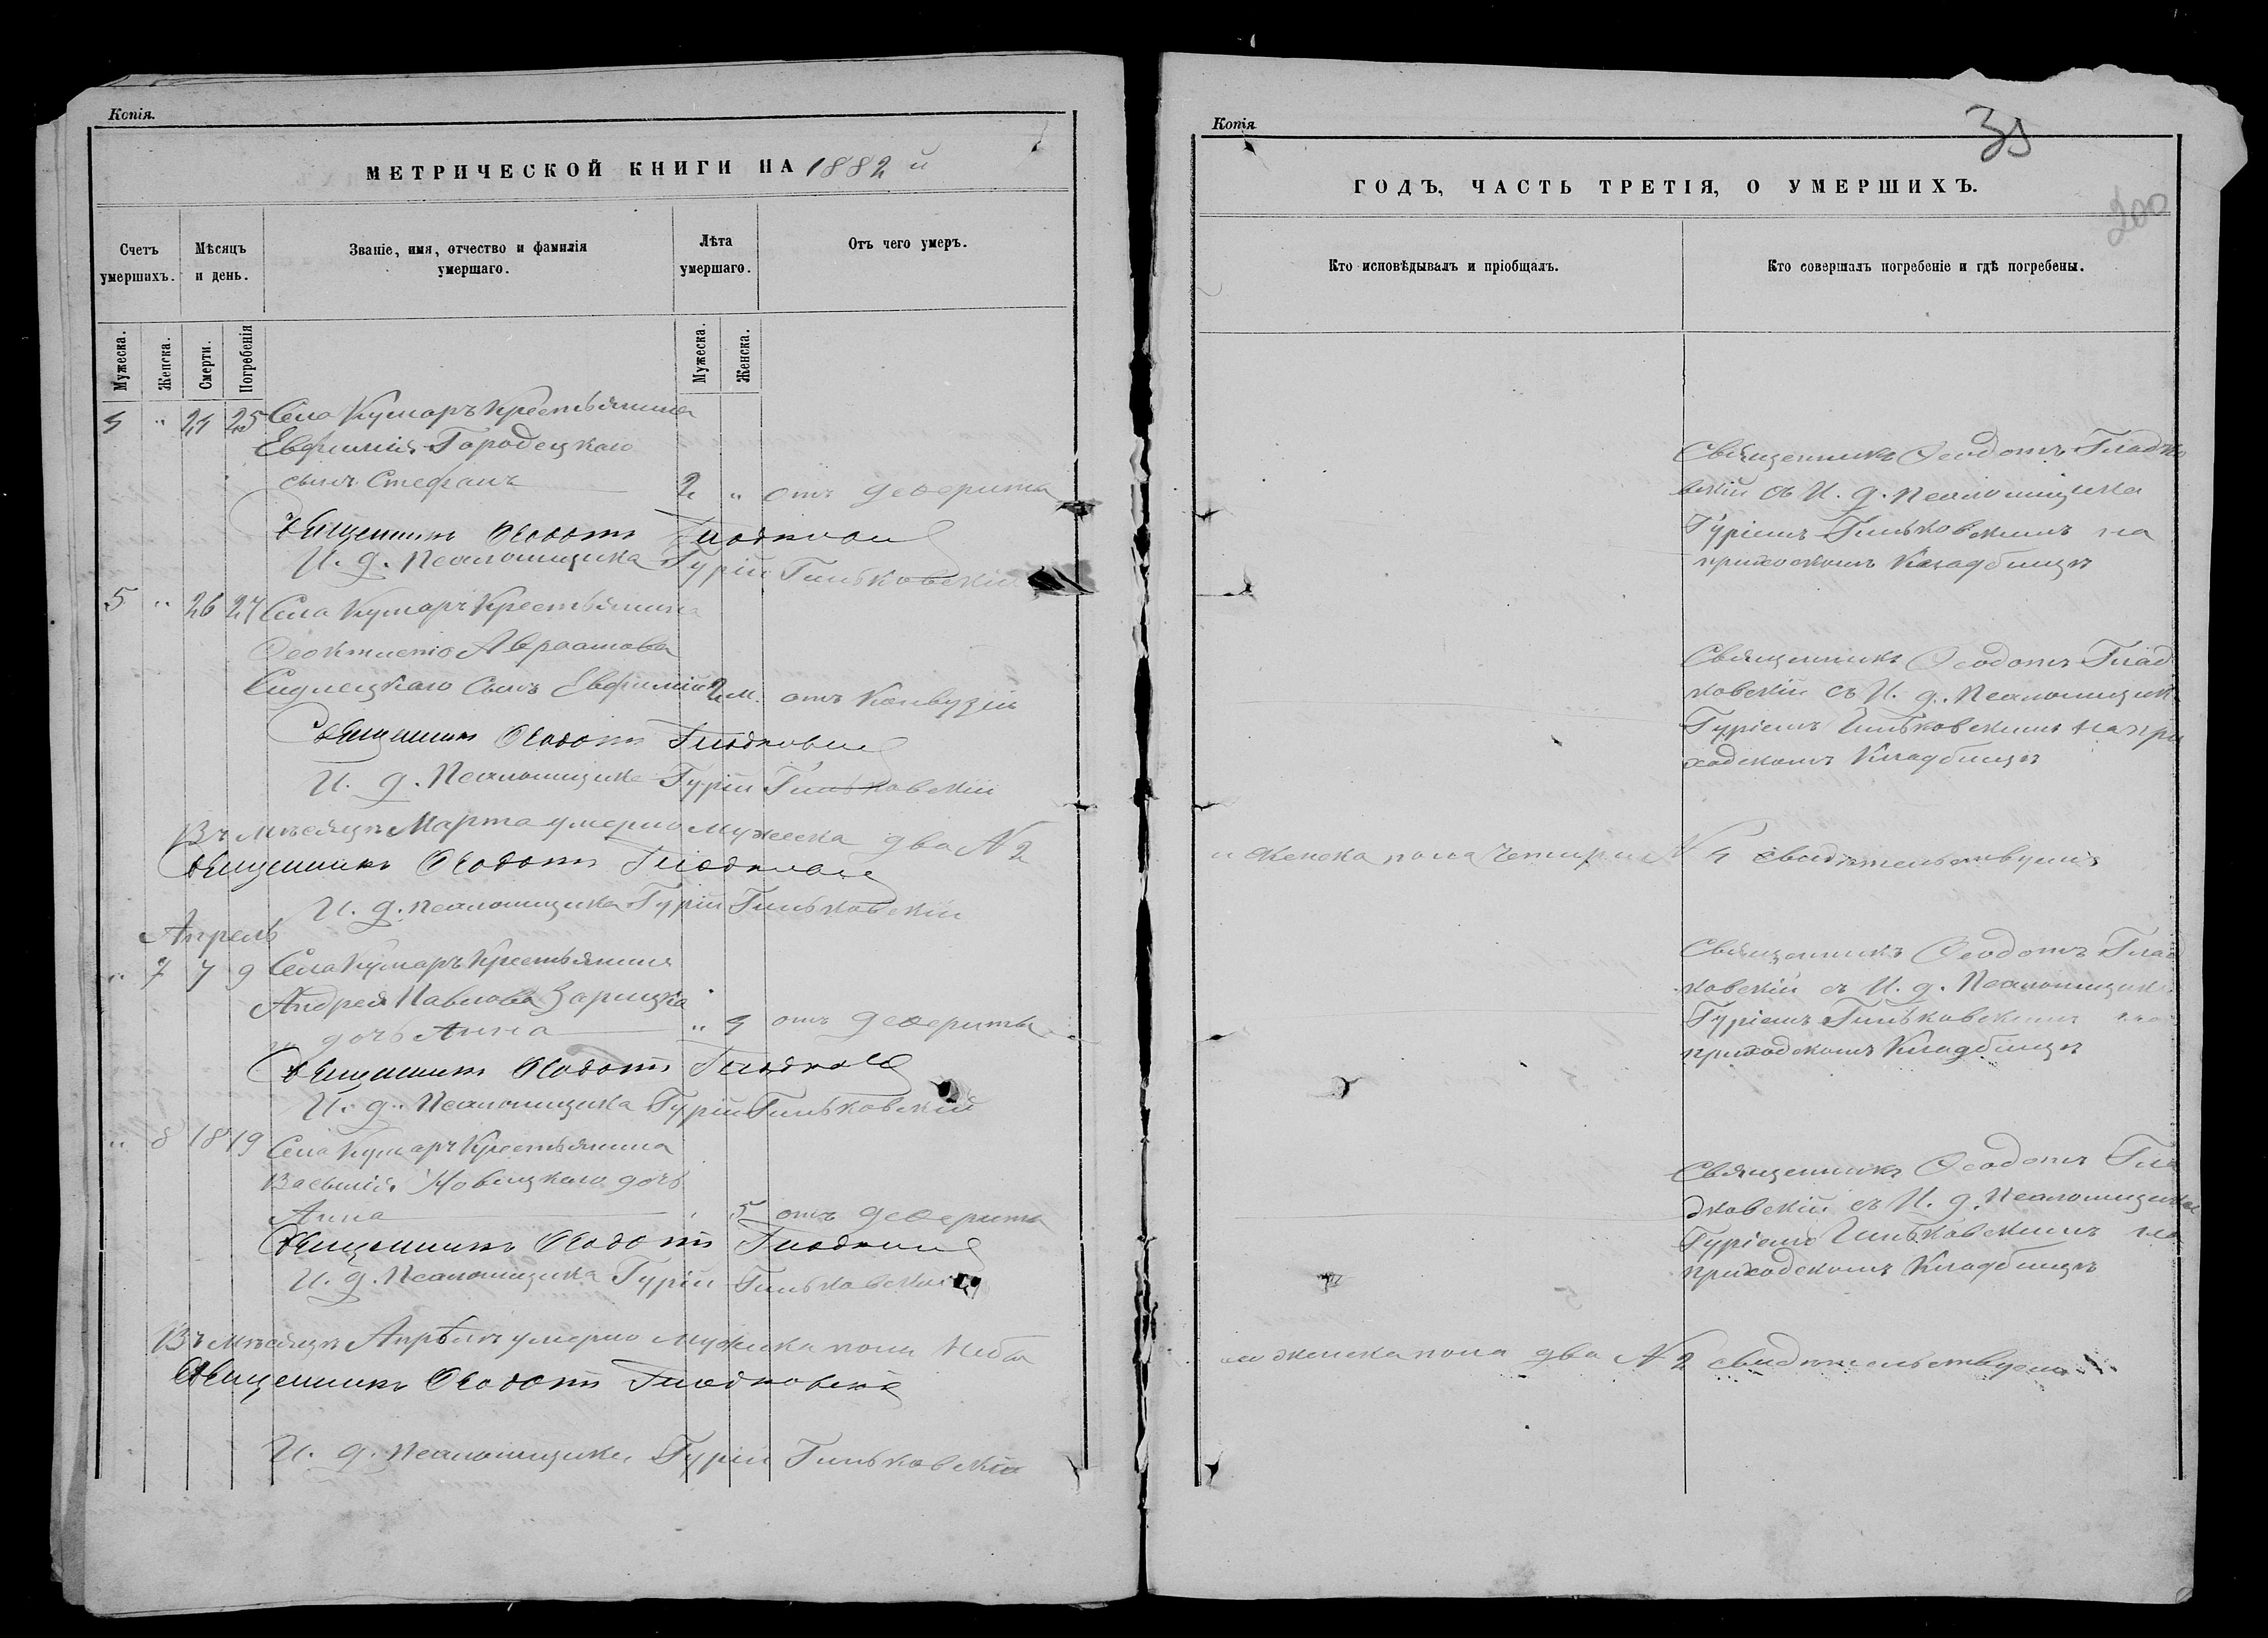 Копія.
МЕТРИЧЕСКОЙ КНИГИ НА 1882 й
Счетъ умершихъ.
Мѣсяцъ и день.
Званіе, имя, отчество и фамилія умершаго.
Лѣта умершаго.
Отъ чего умеръ.
Мужеска.
Женска.
Смерти.
Погребенія
Мужеска.
Женска.
4 " 24 25 Села Кумаръ Крестьянина
Евфимія Городецкаго
сынъ Стефанъ 2 " отъ
Священникъ Ѳеодотъ Гладковскій
И. д. Псаломщика Гурій Гильковскій
5 " 26 27 Села Кумаръ Крестьянина
Авраамова
сынъ Евфимій 2 м. отъ Конвузіи
Священникъ Ѳеодотъ Гладковскій
И. д. Псаломщика Гурій Гильковскій
Въ мѣсяцѣ Марта умерло мужеска два № 2
Священникъ Ѳеодотъ Гладковскій
И. д. псаломщика Гурій Гильковскій
Апрель
" 7 7 9 Села Кумаръ Крестьянина
Андрея Павлова
дочь Анна " 4 отъ
Священникъ Ѳеодотъ Гладковскій
И. д. Псаломщика Гурій Гильковскій
" 8 18 19 Села Кумаръ Крестьянина
Василія Новицкаго дочь
Анна 5 отъ
Священникъ Ѳеодотъ Гладковскій
И. д. Псаломщика Гурій Гильковскій
Въ мѣсяцѣ Апрѣлѣ умерло мужеска пола
Священникъ Ѳеодотъ Гладковскій
И. д. псаломщика Гурій Гильковскій
Копія
ГОДЪ, ЧАСТЬ ТРЕТІЯ, О УМЕРШИХЪ.
200
Кто исповѣдывалъ и пріобщалъ.
Кто совершалъ погребеніе и гдѣ погребены.
Священникъ Ѳеодотъ Гладко
вскій съ И. д. Псаломщика
Гуріемъ Гильковскимъ на
приходскомъ Кладбищѣ
Священникъ Ѳеодотъ Глад
ковскій съ И. д. Псаломщик
Гуріемъ Гильковскимъ на при
ходскомъ Кладбищѣ
и женска пола Четыри № 4 свидѣтельствуемъ
Священникъ Ѳеодотъ Глад
ковскій съ И. д. Псаломщик
Гуріемъ Гильковскимъ на
приходскомъ Кладбищѣ
Священникъ Ѳеодотъ Гла
дковскій съ И. д. Псаломщика
Гуріемъ Гильковскимъ на
приходскомъ Кладбищѣ
женска пола два № 2 свидѣтельствуемъ